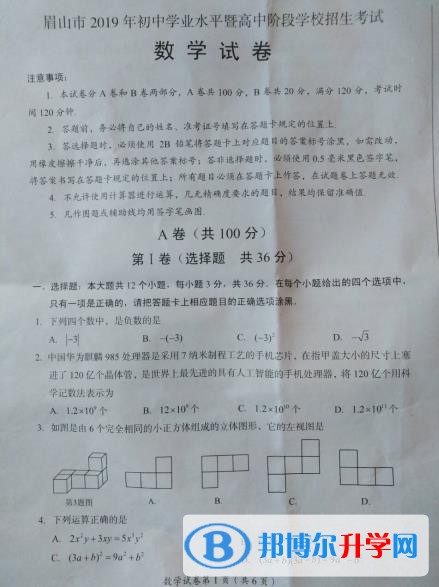 眉山市 2019 年初中学业水平暨高中阶段学校招生考试
数 学 试 卷
注意事项：
1. 本试卷分 A 卷和 B 卷两部分，A 卷共 100 分，B 卷共 20 分，满分 120 分，考试时
间 120 分钟.
2. 答题前，务必将自己的姓名、准考证号填写在答题卡规定的位置上.
3. 答选择题时，必须使用 2B 铅笔将答题卡上对应题目的答案标号涂黑，如需改动，
用橡皮擦擦干净后，再选涂其他答案标号；答非选择题时，必须使用 0.5 毫米黑色签字笔，
将答案书写在答题卡规定的位置上；所有题目必须在答题卡上作答，在试题卷上答题无效.
4. 不允许使用计算器进行运算，凡无精确度要求的题目，结果均保留准确值.
5. 凡作图题或辅助线均用签字笔画图.
A 卷（共 100 分）
第 I 卷（选择题 共 36 分）
一、选择题：本大题共 12 个小题，每小题 3 分，共 36 分．在每个小题给出的四个选项中，
只有一项是正确的，请把答题卡上相应题目的正确选项涂黑．
1. 下列四个数中，是负数的是
A. |−3| B. −(−3) C. (−3)² D. −√3
2. 中国华为麒麟 985 处理器是采用 7 纳米制程工艺的手机芯片，在指甲盖大小的尺寸上塞
进了 120 亿个晶体管，是世界上最先进的具有人工智能的手机处理器，将 120 亿个用科
学记数法表示为
A. 1.2×10⁹ 个 B. 12×10⁹ 个 C. 1.2×10¹⁰ 个 D. 1.2×10¹¹ 个
3. 如图是由 6 个完全相同的小正方体组成的立体图形，它的左视图是
第3题图 A. B. C. D.
4. 下列运算正确的是
A. 2x²y + 3xy = 5x³y²
C. (3a + b)² = 9a² + b²
数学试卷第 1 页（共 6 页）
邦博尔升学网